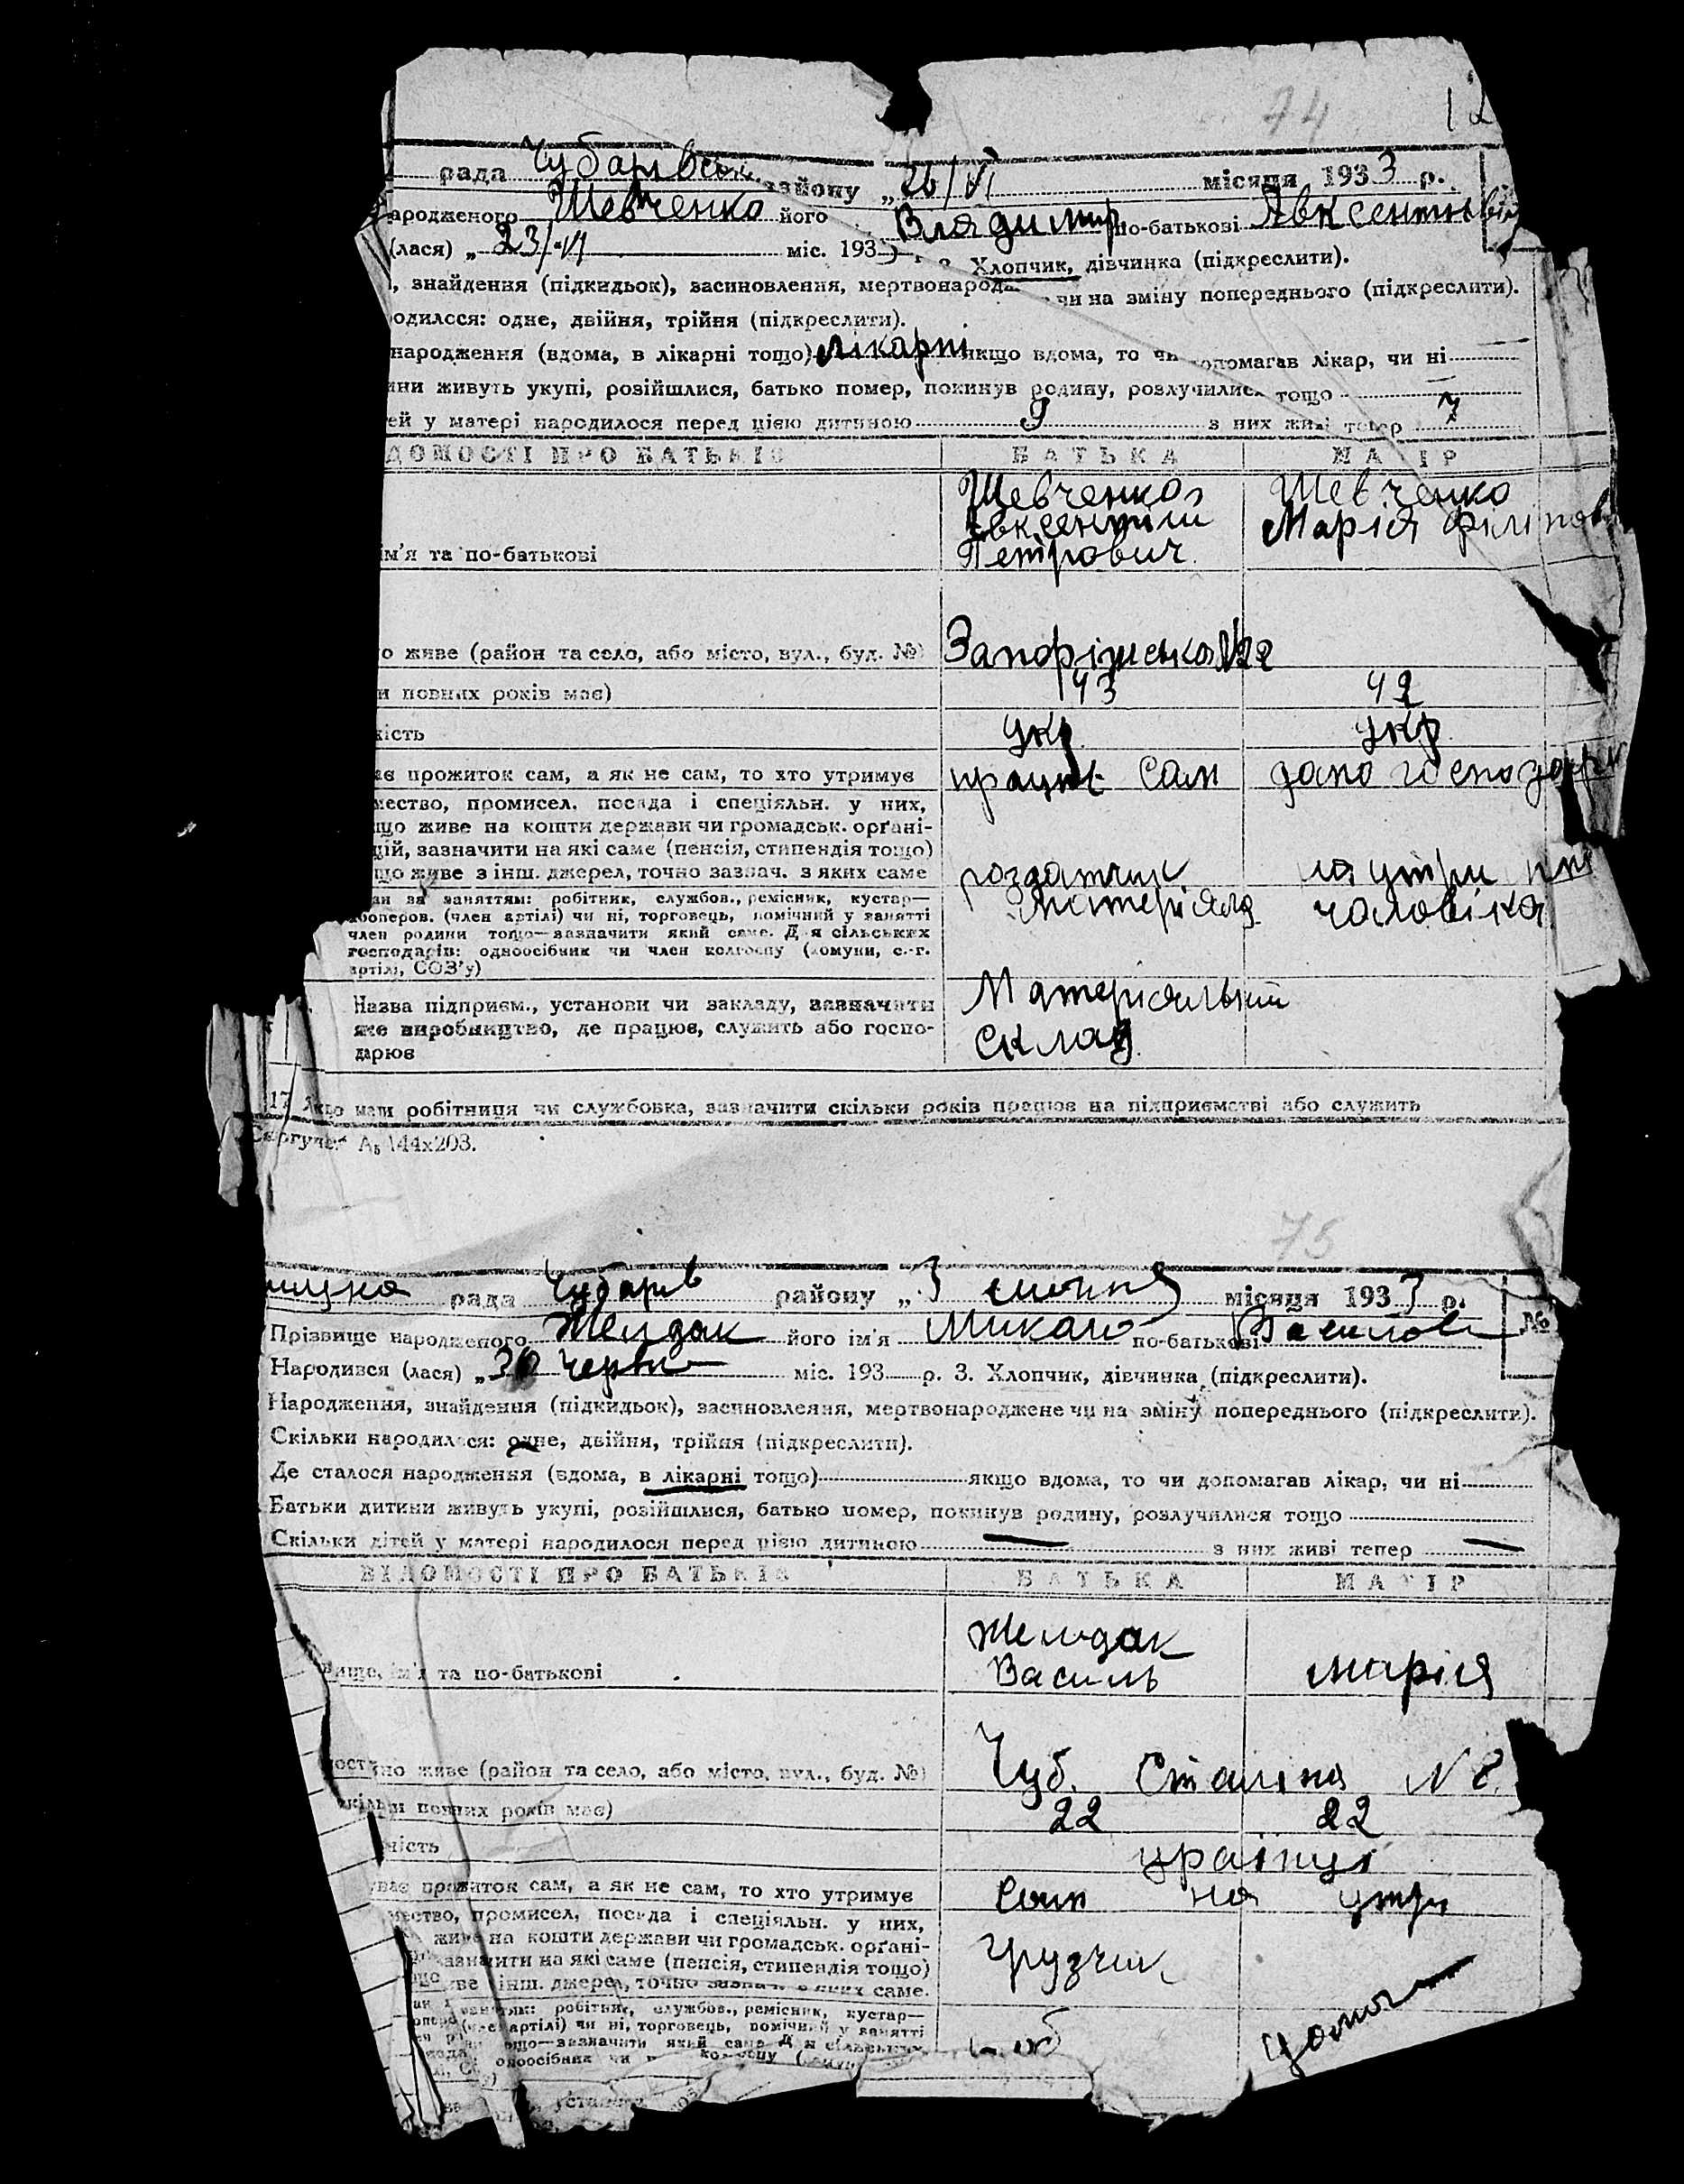 74
12
рада Чубарівськ району „26/VI місяця 1933 р.
ародженого Шевченко його Владимир по-батькові Явксентьеві
(лася) „23/VI міс. 193 р. 3. Хлопчик, дівчинка (підкреслити).
, знайдення (підкидьок), засиновлення, мертвонарод чи на зміну попереднього (підкреслити).
одилося: одне, двійня, трійня (підкреслити).
народження (вдома, в лікарні тощо) лікарні якщо вдома, то чи допомагав лікар, чи ні
ини живуть укупі, розійшлися, батько помер, покинув родину, розлучилися тощо
тей у матері народилося перед цією дитиною 9 з них живі тепер 7
ДОМОСТІ ПРО БАТЬКІВ БАТЬКА МАТІР
Шевченко Шевченко
Явксентий Марія Філіпов
ім'я та по-батькові Петрович
о живе (район та село, або місто, вул., буд. №) Запоріжська №22
и повних років має) 43 42
ність укр. укр.
ає прожиток сам, а як не сам, то хто утримує працює сам домогосподарка
мество, промисел, посада і спеціяльн. у них,
що живе на кошти держави чи громадськ. орґані-
цій, зазначити на які саме (пенсія, стипендія тощо)
що живе з інш. джерел, точно зазнач. з яких саме роздатчик на утри
ан за заняттям: робітник, службов., ремісник, кустар—
кооперов. (член артілі) чи ні, торговець, помічний у занятті матеріяла чоловіка
член родини тощо—зазначити який саме. Для сільських
господарів: одноосібник чи член колгоспу (комуни, с.-г.
артілі, СОЗ'у)
Назва підприєм., установи чи закладу, зазначити Матеріяльний
яке виробництво, де працює, служить або госпо- склад
дарює
17 Якщо мати робітниця чи службовка, зазначити скільки років працює на підприємстві або служить
А₅ 144x203.
75
рада Чубарів району „3 липня місяця 1933 р. №
Прізвище народженого Желдак його ім'я Микало по-батькові Василов
Народився (лася) „30 червн міс. 193 р. 3. Хлопчик, дівчинка (підкреслити).
Народження, знайдення (підкидьок), засиновлення, мертвонароджене чи на зміну попереднього (підкреслити).
Скільки народилося: одне, двійня, трійня (підкреслити).
Де сталося народження (вдома, в лікарні тощо) якщо вдома, то чи допомагав лікар, чи ні
Батьки дитини живуть укупі, розійшлися, батько помер, покинув родину, розлучилися тощо
Скільки дітей у матері народилося перед цією дитиною — з них живі тепер —
ВІДОМОСТІ ПРО БАТЬКІВ БАТЬКА МАТІР
Желдак
вище, ім'я та по-батькові Василь Марія
постійно живе (район та село, або місто, вул., буд. №) Чуб. Сталіна N 8.
скільки повних років має) 22 22
ність украінці
ває прожиток сам, а як не сам, то хто утримує сам на утри
мество, промисел, посада і спеціяльн. у них,
живе на кошти держави чи громадськ. орґані-
зазначити на які саме (пенсія, стипендія тощо) грузчик
ве інш. джерел, точно зазнач. з яких саме.
заняттям: робітник, службов., ремісник, кустар—
(член артілі) чи ні, торговець, помічний у занятті
тощо—зазначити який саме Для сільських
одноосібник чи